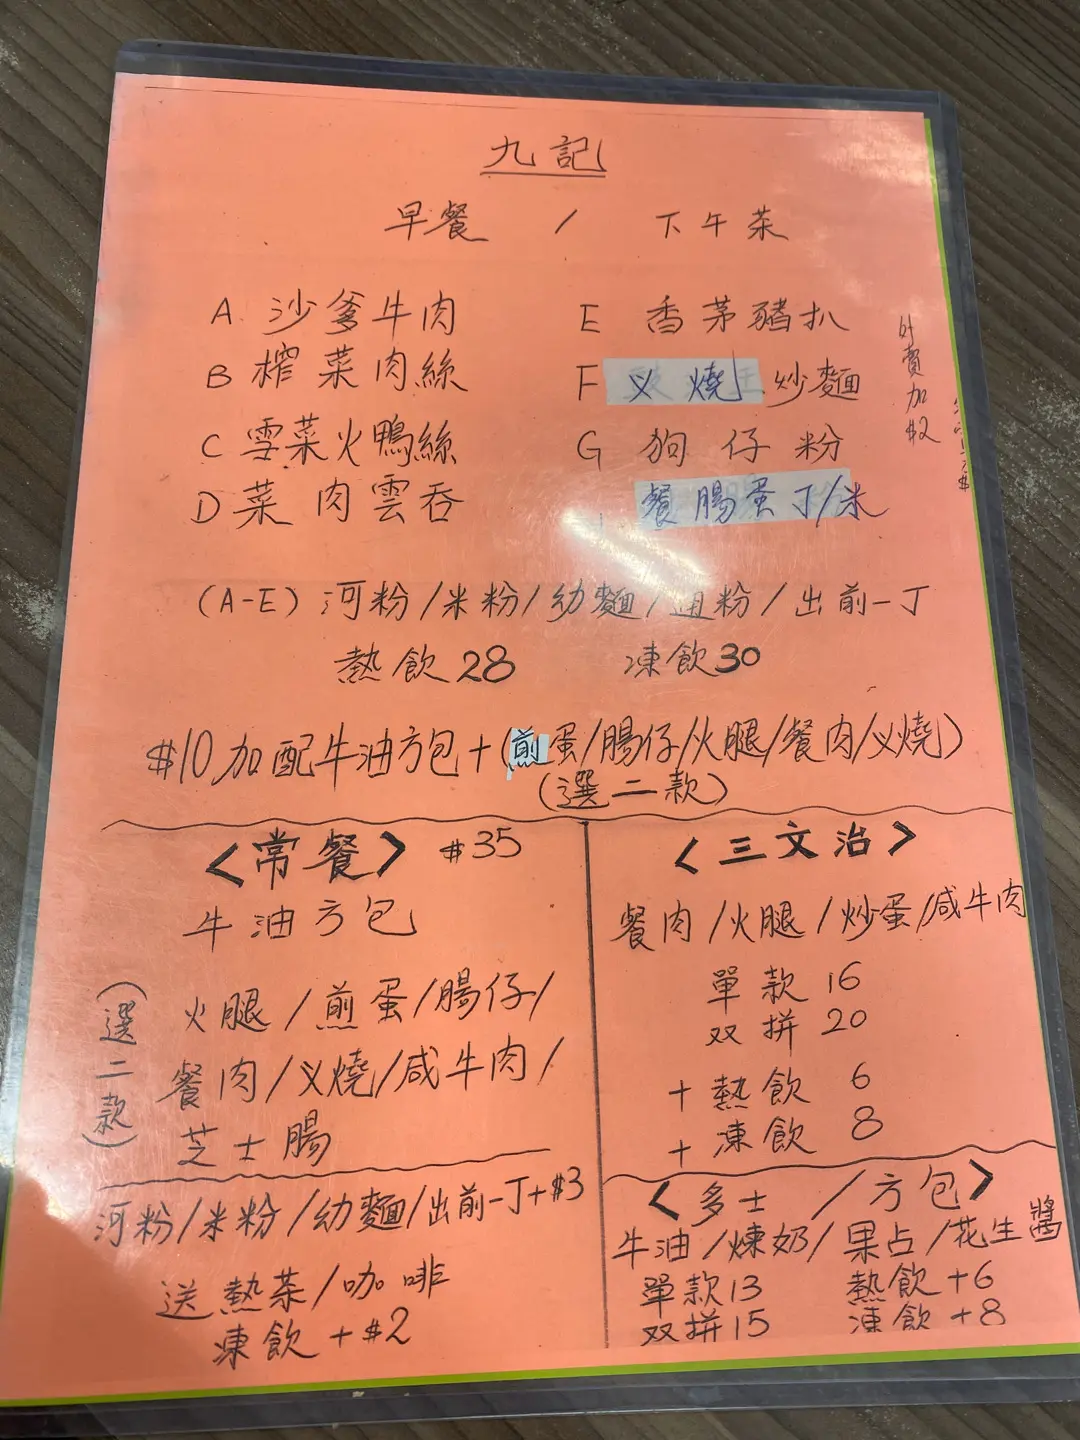 九記
早餐 / 下午茶
A 沙爹牛肉
B 榨菜肉絲
C 雪菜火鴨絲
D 菜肉雲吞
E 香茅豬扒
F 叉燒炒麵
G 狗仔粉
餐腸蛋丁/米
外賣加$2
(A-E) 河粉/米粉/幼麵/通粉/出前一丁
熱飲28 凍飲30
$10加配牛油方包+(煎蛋/腸仔/火腿/餐肉/叉燒)
(選二款)
<常餐> $35
牛油方包
(選二款)
火腿/煎蛋/腸仔/
餐肉/叉燒/咸牛肉/
芝士腸
河粉/米粉/幼麵/出前一丁+$3
送熱茶/咖啡
凍飲+$2
<三文治>
餐肉/火腿/炒蛋/咸牛肉
單款 16
双拼 20
+熱飲 6
+凍飲 8
<多士/方包>
牛油/煉奶/果占/花生醬
單款13 熱飲+6
双拼15 凍飲+8